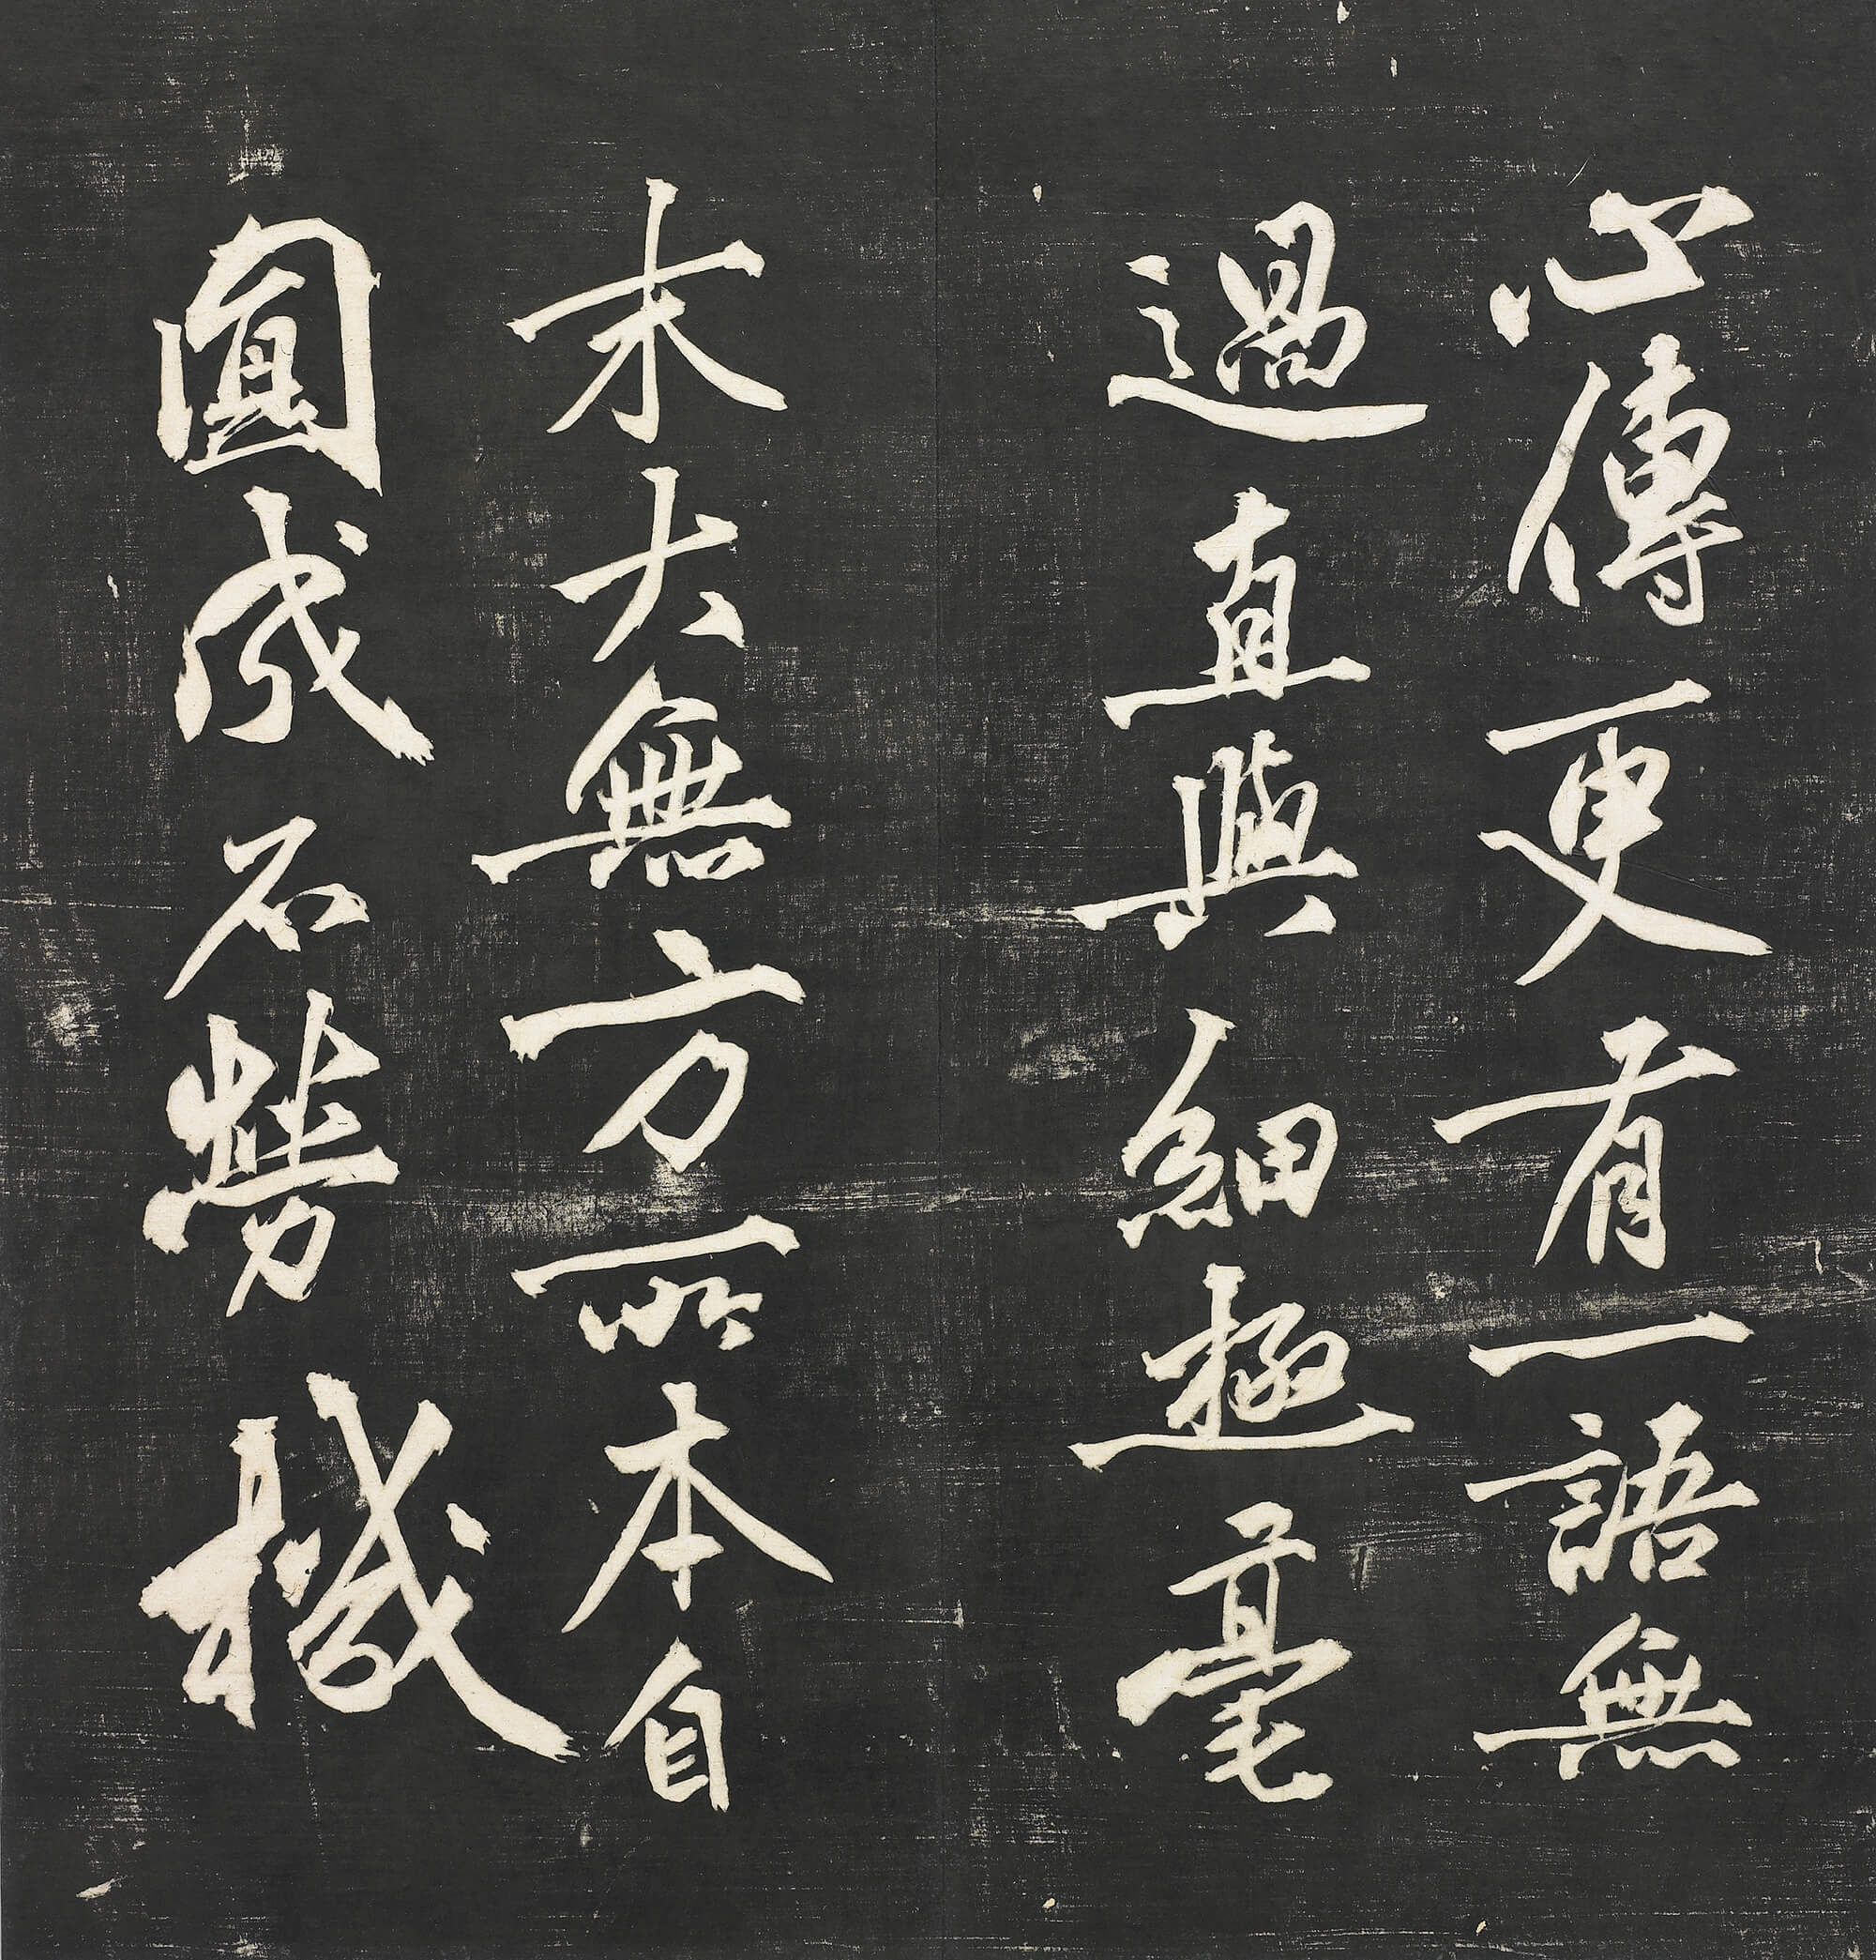 心傳更有一語無
過直與細極毫
末大無方所本自
圓成不勞機